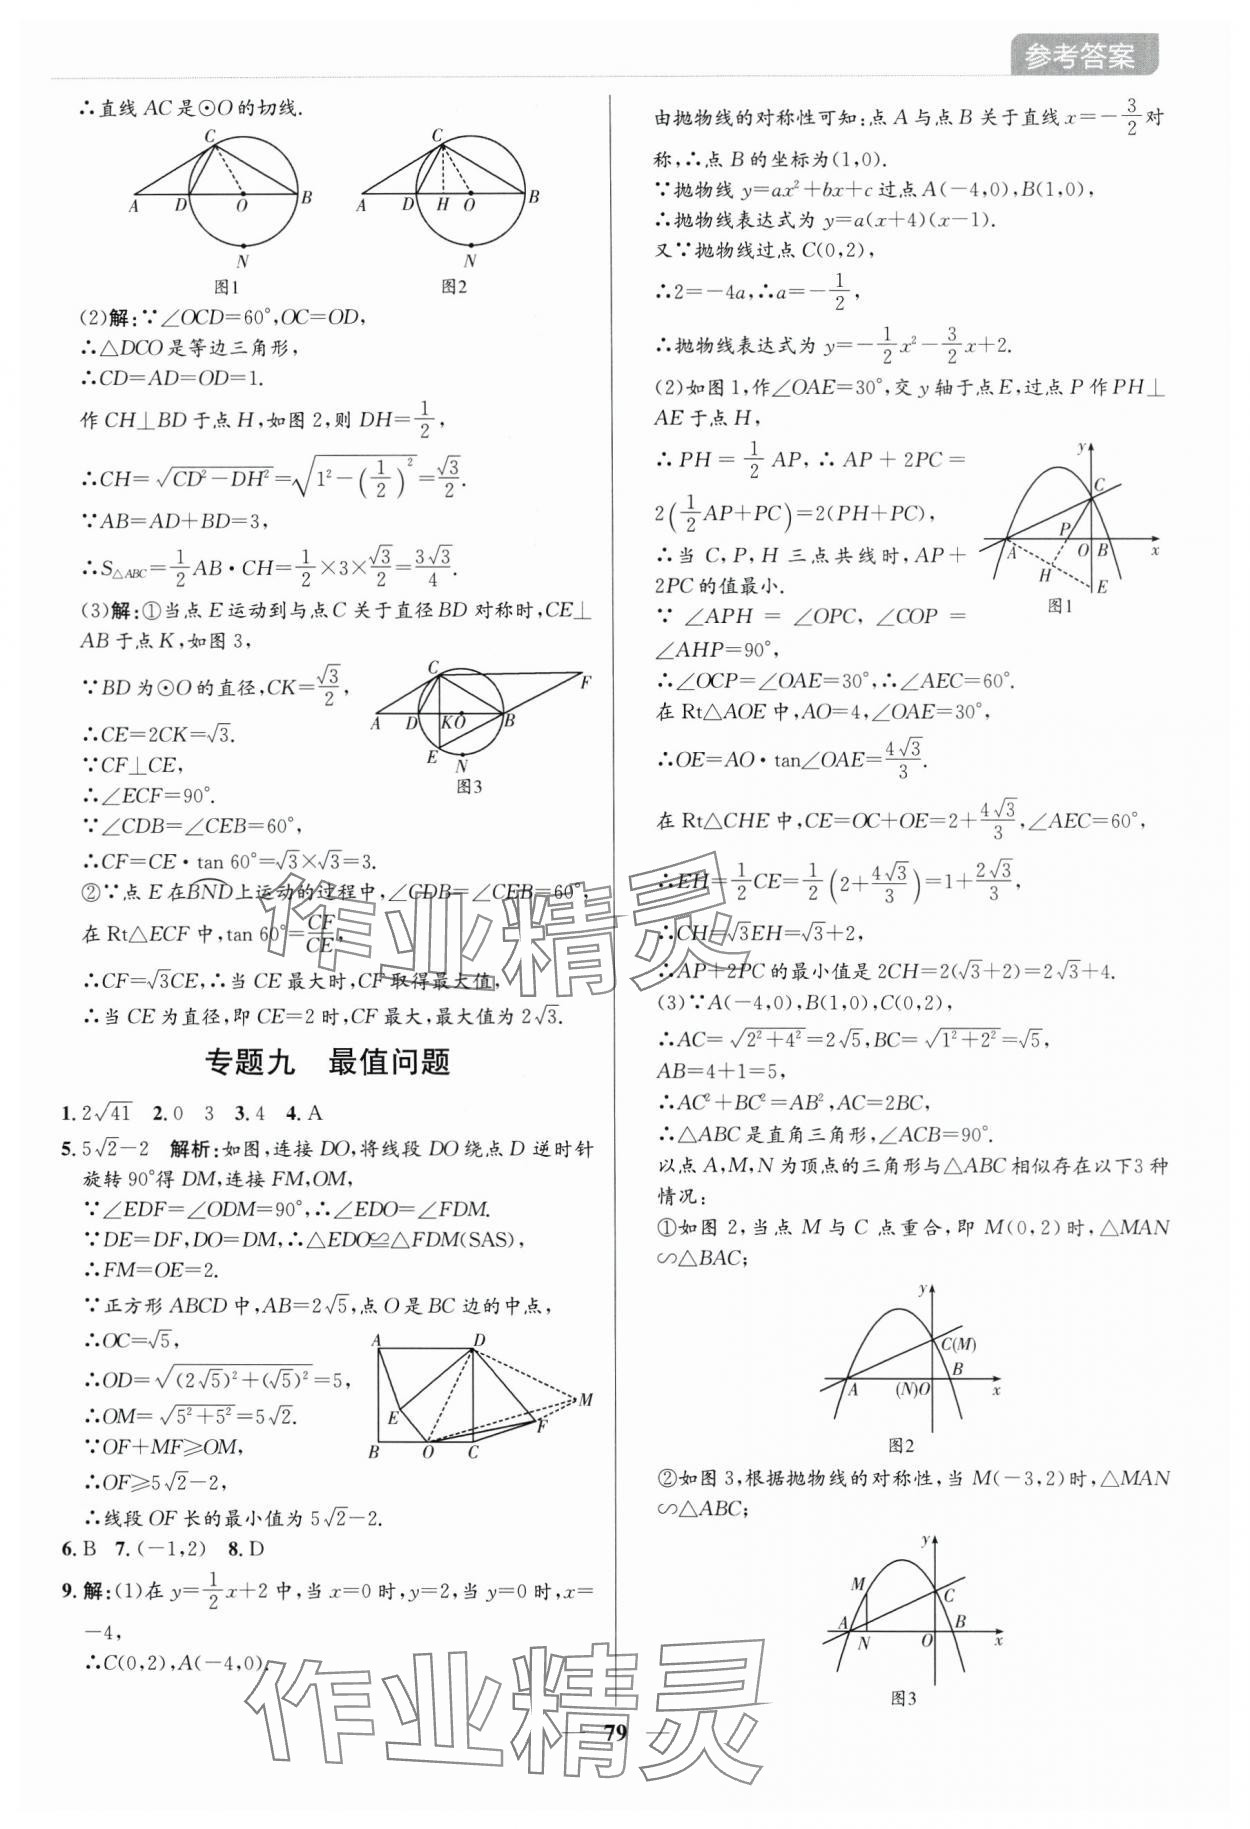 参考答案
∴直线 AC 是⊙O 的切线.
C
A D O B
N
图1
C
A D H O B
N
图2
(2)解:∵∠OCD=60°,OC=OD,
∴△DCO 是等边三角形,
∴CD=AD=OD=1.
作 CH⊥BD 于点 H,如图 2,则 DH=1/2,
∴CH=√(CD²-DH²)=√(1²-(1/2)²)=√3/2.
∵AB=AD+BD=3,
∴S△ABC=1/2 AB·CH=1/2×3×√3/2=3√3/4.
(3)解:①当点 E 运动到与点 C 关于直径 BD 对称时,CE⊥
AB 于点 K,如图 3,
∵BD 为⊙O 的直径,CK=√3/2,
∴CE=2CK=√3.
∵CF⊥CE,
∴∠ECF=90°.
C
F
A D K O B
E
N
图3
∵∠CDB=∠CEB=60°,
∴CF=CE·tan 60°=√3×√3=3.
②∵点 E 在BND上运动的过程中,∠CDB=∠CEB=60°,
在 Rt△ECF 中,tan 60°=CF/CE,
∴CF=√3CE,∴当 CE 最大时,CF 取得最大值,
∴当 CE 为直径,即 CE=2 时,CF 最大,最大值为 2√3.
专题九 最值问题
1. 2√41 2. 0 3 3. 4 4. A
5. 5√2-2 解析:如图,连接 DO,将线段 DO 绕点 D 逆时针
旋转 90°得 DM,连接 FM,OM,
∵∠EDF=∠ODM=90°,∴∠EDO=∠FDM.
∵DE=DF,DO=DM,∴△EDO≌△FDM(SAS),
∴FM=OE=2.
∵正方形 ABCD 中,AB=2√5,点 O 是 BC 边的中点,
∴OC=√5,
∴OD=√((2√5)²+(√5)²)=5,
∴OM=√(5²+5²)=5√2.
∵OF+MF≥OM,
∴OF≥5√2-2,
A D
M
E
F
B O C
∴线段 OF 长的最小值为 5√2-2.
6. B 7. (-1,2) 8. D
9. 解:(1)在 y=1/2 x+2 中,当 x=0 时,y=2,当 y=0 时,x=
-4,
∴C(0,2),A(-4,0).
由抛物线的对称性可知:点 A 与点 B 关于直线 x=-3/2 对
称,∴点 B 的坐标为(1,0).
∵抛物线 y=ax²+bx+c 过点 A(-4,0),B(1,0),
∴抛物线表达式为 y=a(x+4)(x-1).
又∵抛物线过点 C(0,2),
∴2=-4a,∴a=-1/2,
∴抛物线表达式为 y=-1/2 x²-3/2 x+2.
(2)如图 1,作∠OAE=30°,交 y 轴于点 E,过点 P 作 PH⊥
AE 于点 H,
∴PH=1/2 AP,∴AP+2PC=
2(1/2 AP+PC)=2(PH+PC),
∴当 C,P,H 三点共线时,AP+
2PC 的值最小.
∵∠APH=∠OPC,∠COP=
∠AHP=90°,
y
C
P
A O B x
H
E
图1
∴∠OCP=∠OAE=30°,∴∠AEC=60°.
在 Rt△AOE 中,AO=4,∠OAE=30°,
∴OE=AO·tan∠OAE=4√3/3.
在 Rt△CHE 中,CE=OC+OE=2+4√3/3,∠AEC=60°,
∴EH=1/2 CE=1/2(2+4√3/3)=1+2√3/3,
∴CH=√3EH=√3+2,
∴AP+2PC 的最小值是 2CH=2(√3+2)=2√3+4.
(3)∵A(-4,0),B(1,0),C(0,2),
∴AC=√(2²+4²)=2√5,BC=√(1²+2²)=√5,
AB=4+1=5,
∴AC²+BC²=AB²,AC=2BC,
∴△ABC 是直角三角形,∠ACB=90°.
以点 A,M,N 为顶点的三角形与△ABC 相似存在以下3 种
情况:
①如图 2,当点 M 与 C 点重合,即 M(0,2)时,△MAN
∽△BAC;
y
C(M)
B
A (N)O x
图2
②如图 3,根据抛物线的对称性,当 M(-3,2)时,△MAN
∽△ABC;
y
M
C
A B
N O x
图3
作业精灵
作业精灵
79